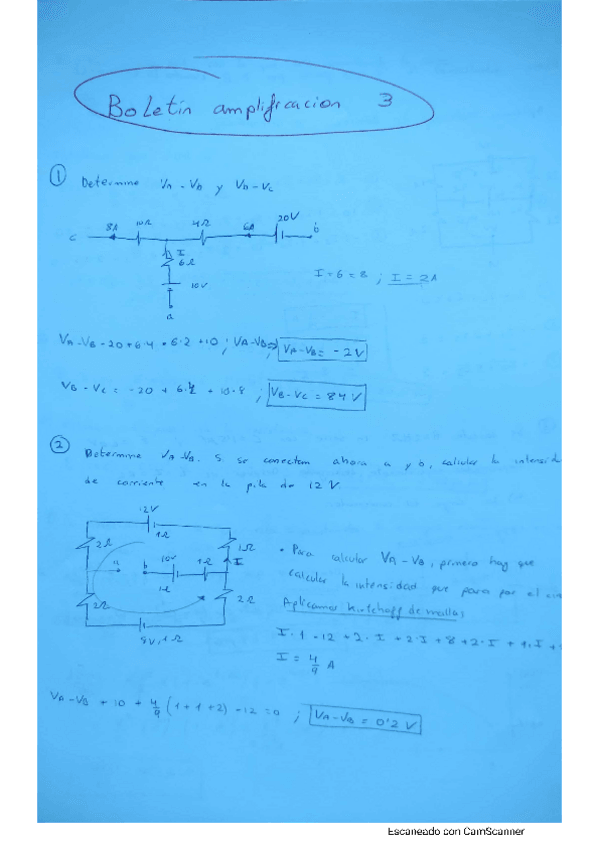 Boletín amplificacion 3
① Determine VA - VB y VB - VC
20V
8A 10Ω 4Ω 6A
c b
I
6Ω
10V
a
I + 6 = 8 ; I = 2A
VA - VB - 20 + 6·4 + 6·2 + 10 ; VA - VB = ; VA - VB = - 2V
VB - VC = - 20 + 6·4 + 10·8 ; VB - VC = 84 V
② Determine VA - VB. S se conectam ahora a y b, calcular la intensid
de corriente en la pila de 12 V.
12V
1Ω
2Ω 1Ω
a b 10V 1Ω I
1Ω
2Ω 2Ω
8V, 1Ω
• Para calcular VA - VB, primero hay que
calcular la intensidad que pasa por el
Aplicamos kirtchoff de mallas
I·1 - 12 + 2·I + 2·I + 8 + 2·I + 1·I +
I = 4/9 A
VA - VB + 10 + 4/9 (1 + 1 + 2) - 12 = 0 ; VA - VB = 0'2 V
Escaneado con CamScanner